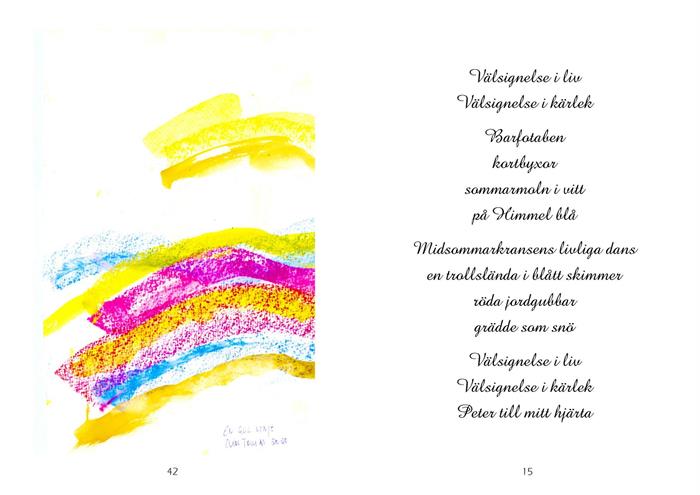 EN GUL
42
Välsignelse i liv
Välsignelse i kärlek
Barfotaben
kortbyxor
sommarmoln i vitt
på Himmel blå
Midsommarkransens livliga dans
en trollslända i blått skimmer
röda jordgubbar
grädde som snö
Välsignelse i liv
Välsignelse i kärlek
Peter till mitt hjärta
15